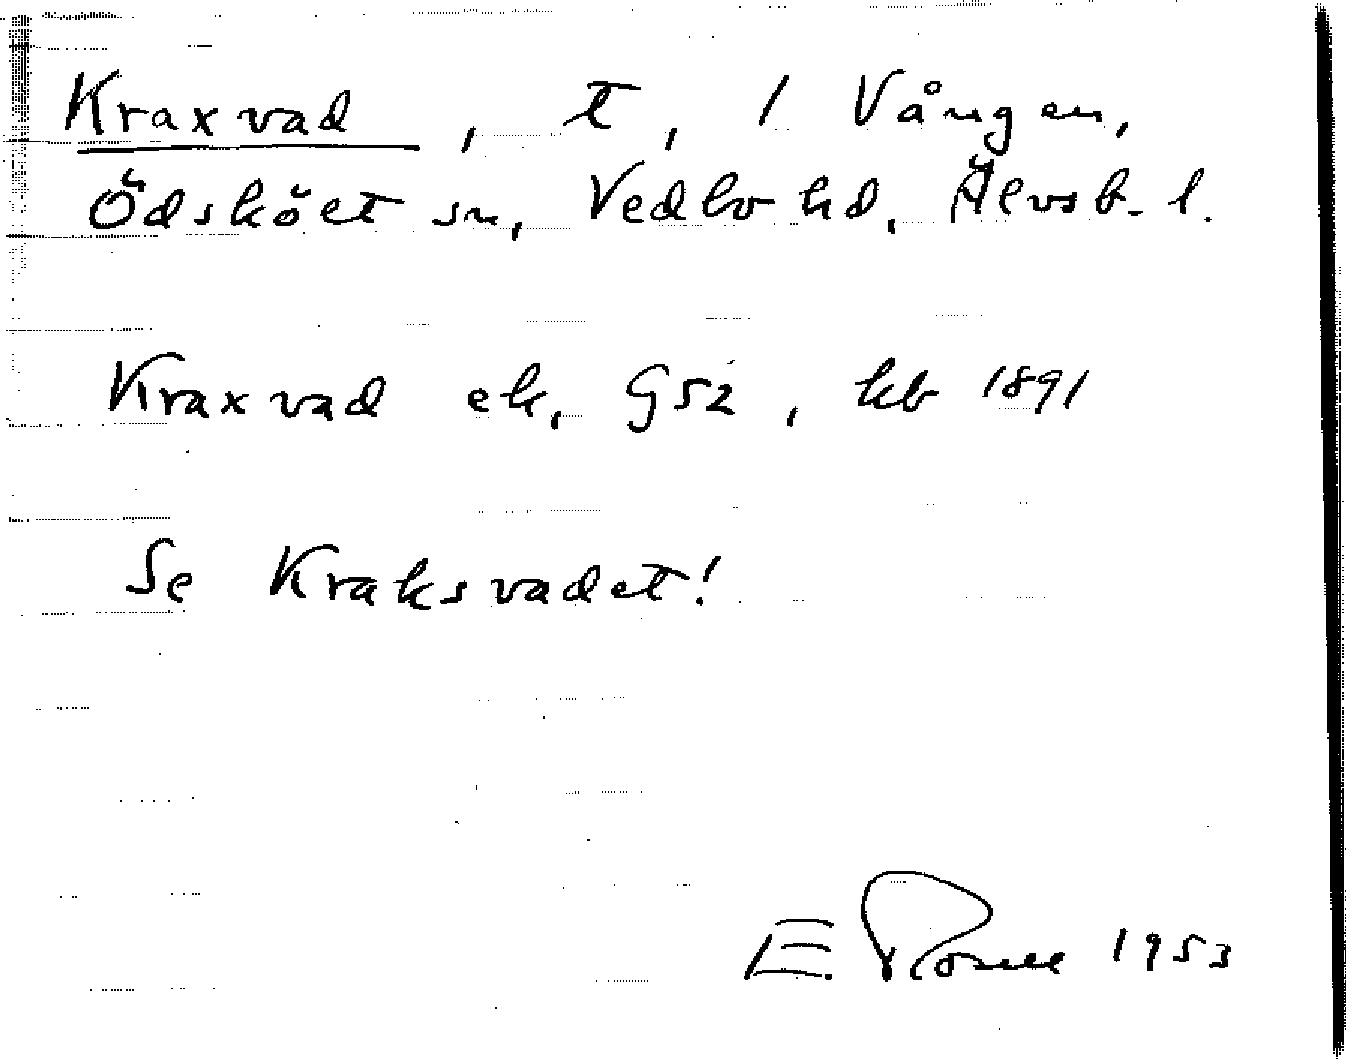 Kraxvad, t, 1 Vången,
Ödsköet sn, Vedbo hd, Älvsb. l.
Kraxvad ek, G52, kb 1891
Se Kraksvadet!
E. Rosell 1953